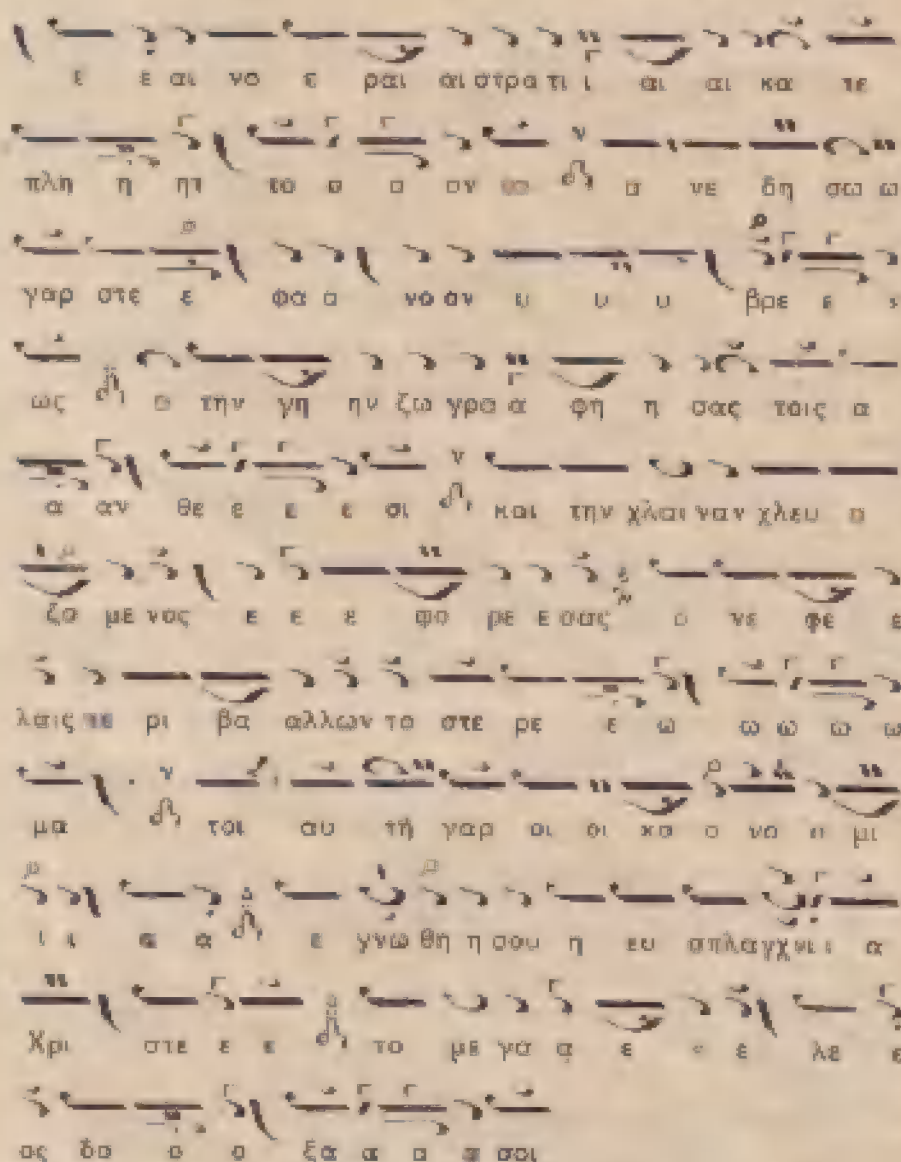 ε ε αι νο ε ραι αι στρα τι ι αι αι κα τε
πλη η ητ το ο ο ον ο α νε δη σω ω
γαρ στε ε φα α νο ον υ υ υ βρε ε
ως ο την γη ην ζω γρα α φη η σας τοις α
α αν θε ε ε ε σι και την χλαι ναν χλευ α
ζο με νος ε ε ε φο ρε ε σας ο νε φε ε
λαις πε ρι βα αλλων το στε ρε ε ω ω ω ω ω
μα τοι αυ τη γαρ οι οι κο ο νο ο μι
ι ι α α ε γνω θη η σου η ευ σπλαγχνι ι α
Χρι στε ε ε το με γα α ε ε λε ε
ος δο ο ο ξα α α α σοι